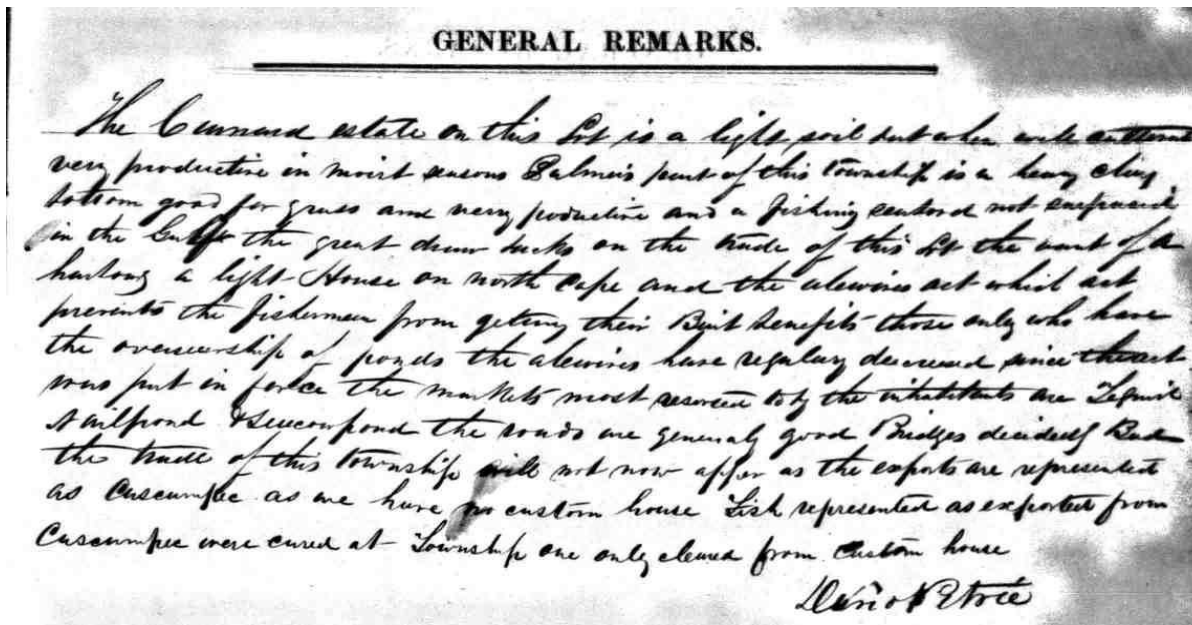 GENERAL REMARKS.
The Cunnard estate on this Lot is a light soil but when well
very productive in moist seasons Palmers part of this township is a heavy clay
bottom good for grass and very productive and a fishing not surpassed
in the Gulf the great draw backs on the trade of this Lot the want of a
harbour a light House on north Cape and the alewives act which act
prevents the fishermen from getting their Bait benefits those only who have
the overseership of ponds the alewives have regulary decreased since the act
was put in force the markets most resorted to by the inhabitants are Tignish
Nailpond & Seacowpond the roads are generaly good Bridges decidedly Bad
the trade of this township will not now apper as the exports are represented
as Cascumpec as we have no custom house Fish represented as exported from
Cascumpec were cured at Township one only cleared from custom house